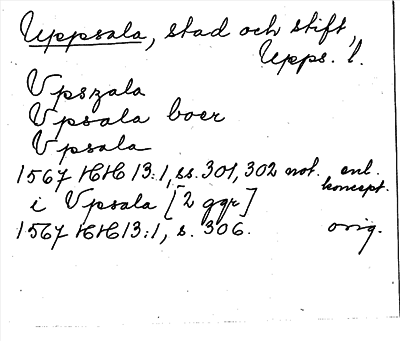 Uppsala, stad och stift,
Upps. l.
Vpszala
Vpsala boer
Vpsala
1567 HH 13:1, ss. 301, 302 not. enl. koncept.
i Vpsala [2 ggr]
1567 HH 13:1, s. 306. orig.